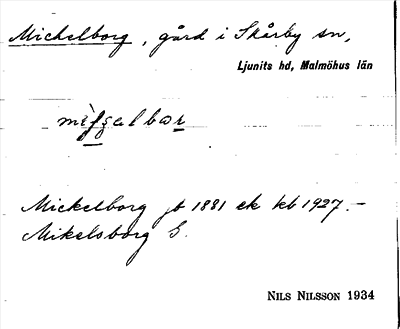 Michelborg, gård i Skårby sn,
Ljunits hd, Malmöhus län
Mickelborg jb 1881 ek kb 1927.-
Mikelsborg G.
NILS NILSSON 1934